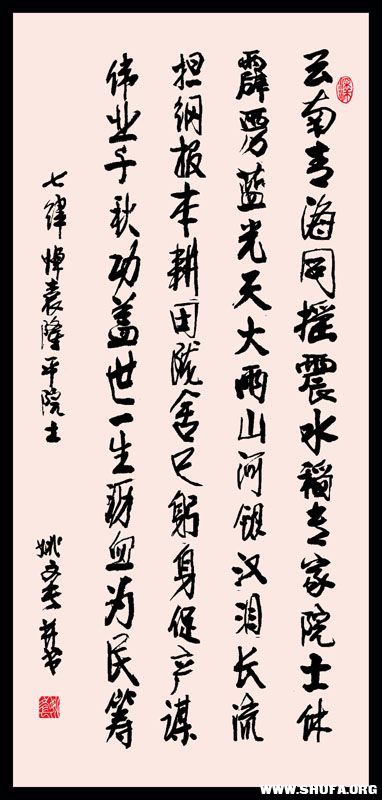 云南青海同摇震水稻专家院士休
霹雳蓝光天大雨山河银汉泪长流
担綱报本耕田陇舍己躬身促产谋
伟业千秋功盖世一生沥血为民筹
七律悼袁隆平院士
姚文 并书
WWW.SHUFA.ORG